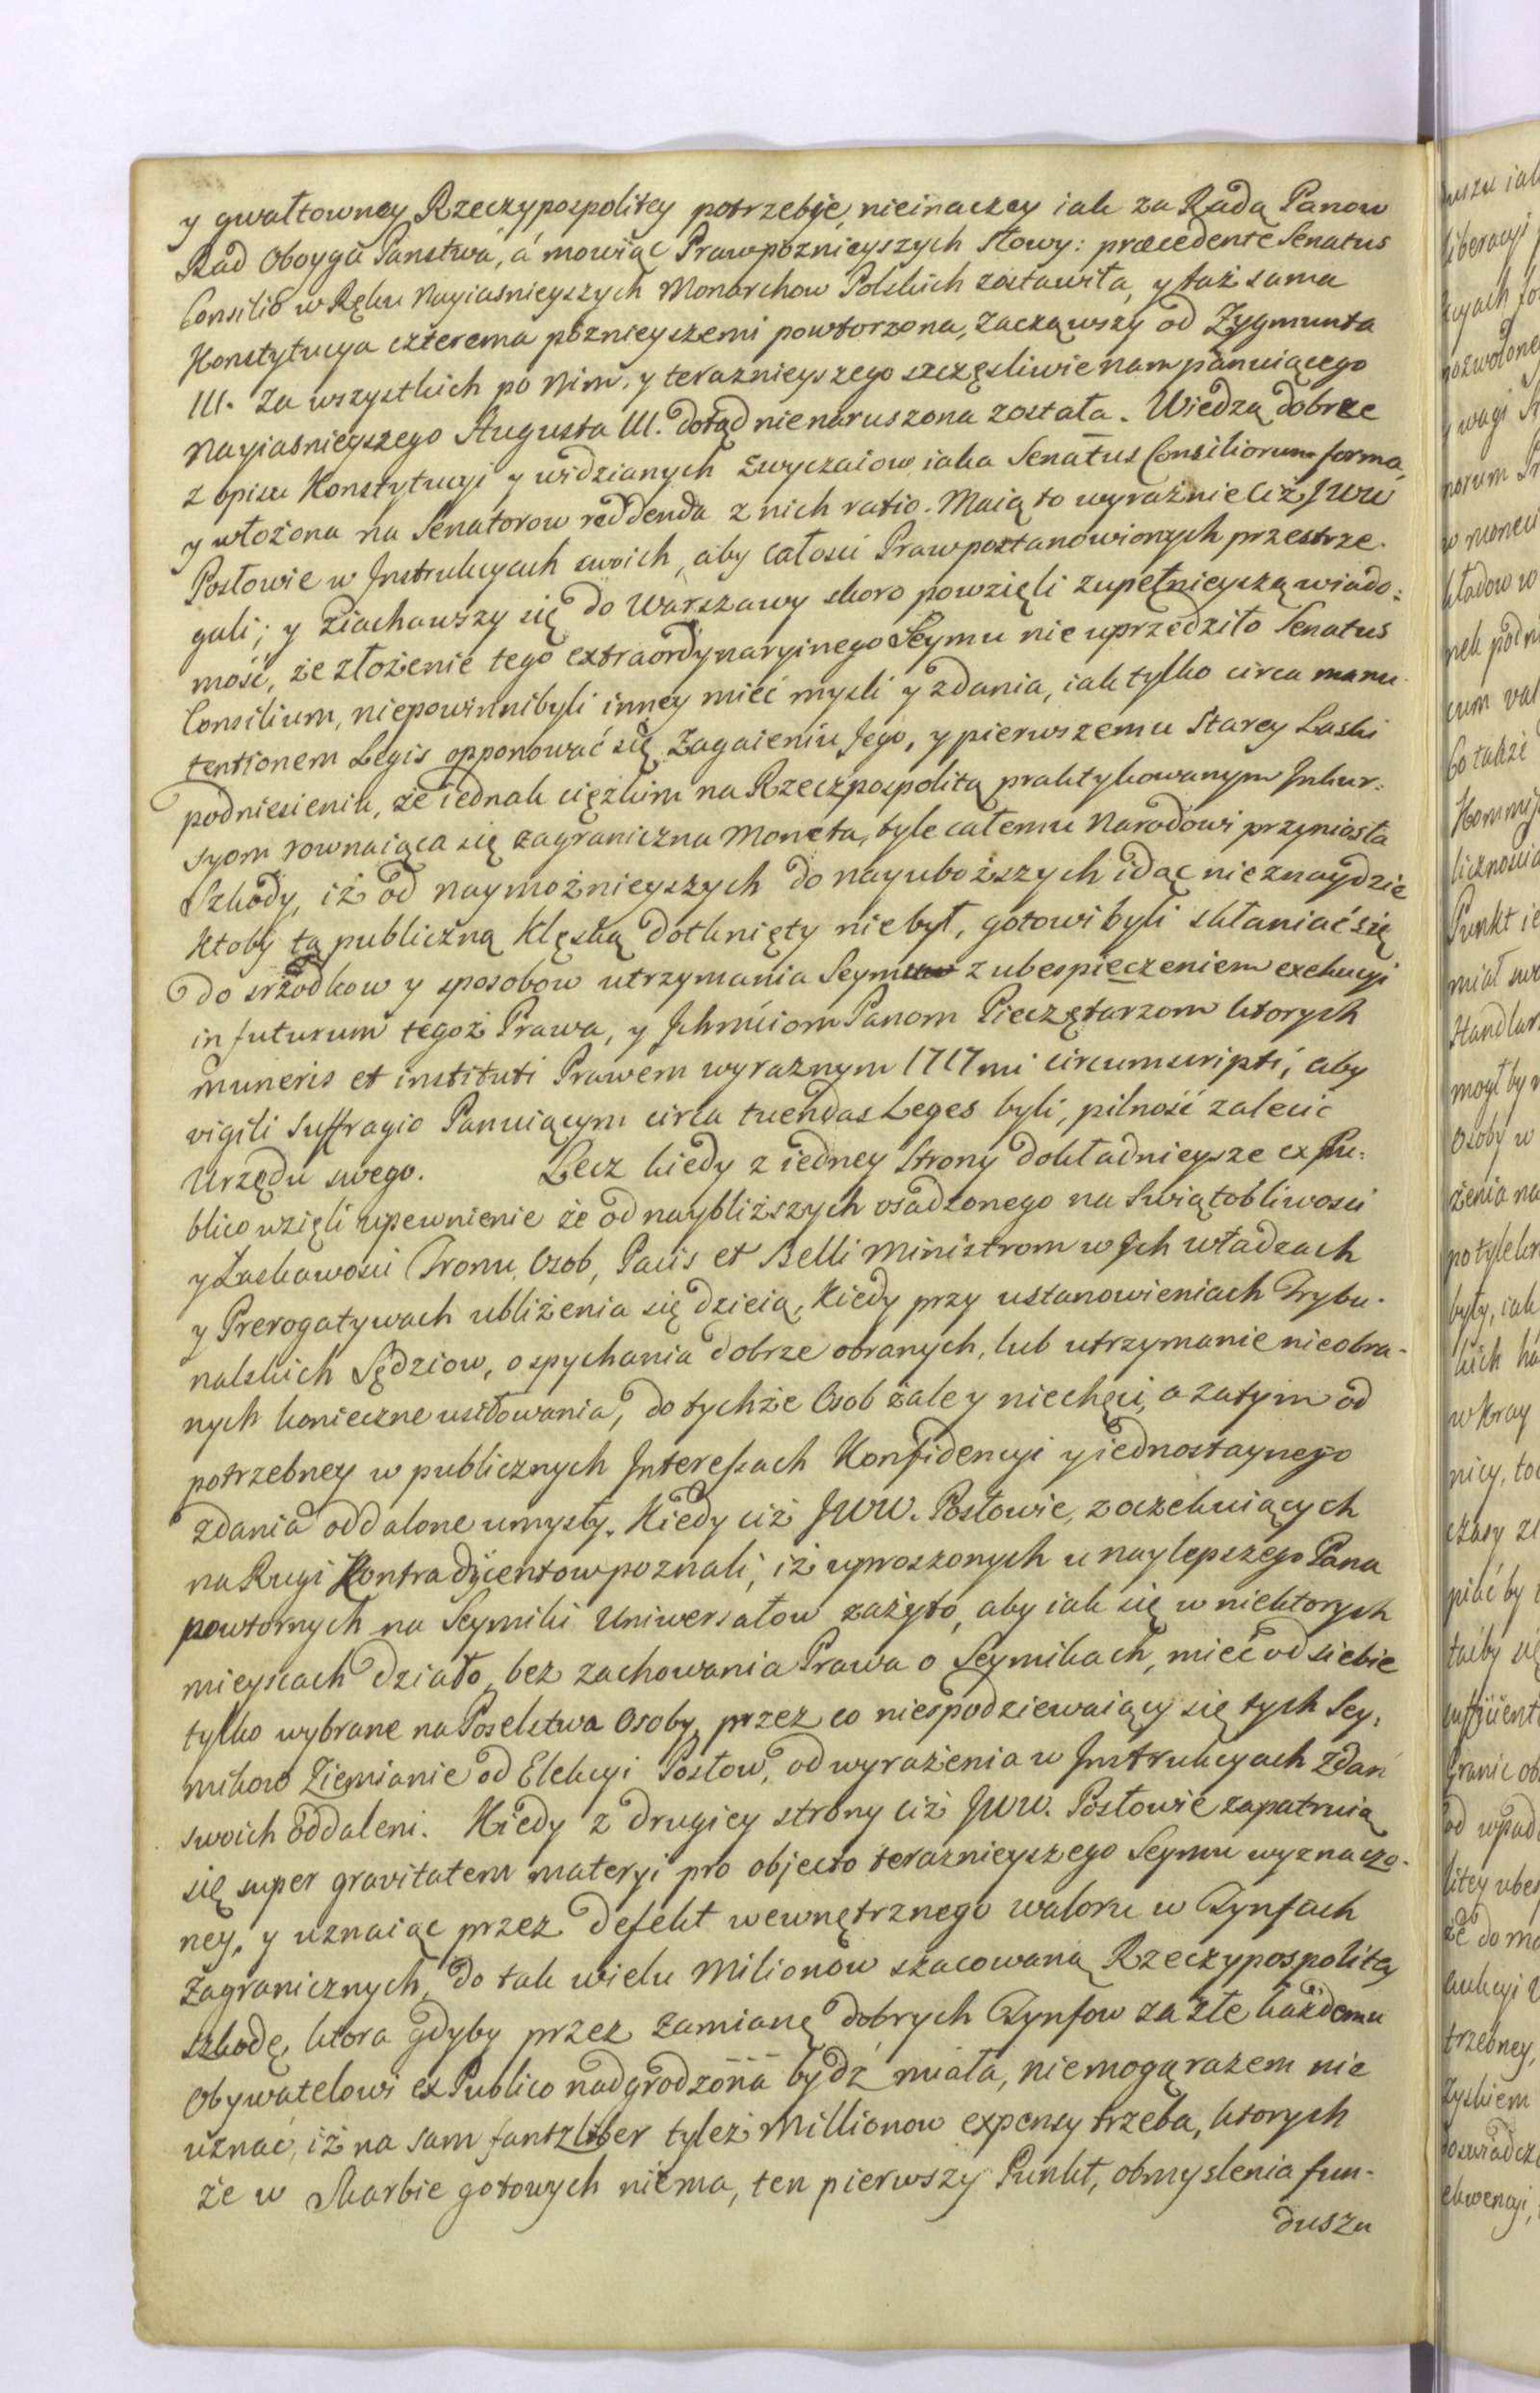 y gwałtowney Rzeczypospolitey potrzebie, nieinaczey iak za Radą Panow
Rad Oboyga Panstwa, á mowiąc Prawpoznieyszych słowy: præcedente Senatus
Consilio w Ręku Nayiasnieyszych Monarchow Polskich zostawiła, y taż sama
Konstytucya czterema poznieyszemi powtorzona, zacząwszy od Zygmunta
III. za wszystkich po Nim, y teraznieyszego szczęsliwie nam panuiącego
Nayiasnieyszego Augusta III. dotąd nienaruszona została. Wiedzą dobrze
z opisu Konstytucyi y widzianych zwyczaiow iaka Senatus Consiliorum forma,
y włożona na Senatorow reddenda z nich ratio. Maią to wyraźnie ciż JWW
Posłowie w Instrukcyach swoich, aby całosci Praw postanowionych przestrze-
gali; y ziachawszy się do Warszawy skoro powzięli zupełnieyszą wiado:
mość, że złożenie tego extraordynaryinego Seymu nie uprzedziło Senatus
Consilium, niepowinni byli inney mieć mysli y zdania, iak tylko circa manu-
tentionem Legis opponować się Zagaieniu Jego, y pierwszemu Starey Laski
podniesieniu, że iednak cięzkim na Rzeczpospolitą praktykowanym Inkur:
syom rownaiąca się zagraniczna Moneta, tyle całemu Narodowi przyniosła
Szkody, iż od naymożnieyszych do nayuboższych idąc nieznaydzie
ktoby tą publiczną klęską dotknięty nie był, gotowi byli skłaniać się
do srzodkow y sposobow utrzymania Seymu z ubespieczeniem exekucyi
in futurum tegoż Prawa, y Jchmciom Panom Pieczętarzom ktorych
muneris et instituti Prawem wyraznym 1717mi circumscripti, aby
vigili suffragio Panuiącym circa tuendas Leges byli, pilność zalecić
Urzędu swego. Lecz kiedy z iedney Strony dokładnieysze ex Pu:
blico wzięli upewnienie że od naybliższych osadzonego na Swiątobliwosci
y Łaskawosci Tronu, Osob, Pacis et Belli Ministrom w Jch władzach
y Prerogatywach ubliżenia się dzieią, Kiedy przy ustanowieniach Trybu-
nalskich Sędziow, o spychania dobrze obranych, lub utrzymanie nieobra-
nych konieczne usiłowania, do tychże Osob żale y niechęci, a zatym od
potrzebney w publicznych Interessach Konfidencyi y iednostaynego
zdania oddalone umysły. Kiedy ciż JWW. Posłowie, z oczekuiących
na Rugi Kontradycentow poznali, iż uproszonych u naylepszego Pana
powtornych na Seymiki Uniwersałow zażyto, aby iak się w niektorych
mieyscach działo, bez zachowania Prawa o Seymikach, mieć od siebie
tylko wybrane na Poselstwa Osoby, przez co niespodziewaiący się tych Sey:
mikow Ziemianie od Elekcyi Posłow, od wyrażenia w Instrukcyach zdań
swoich oddaleni. Kiedy z drugiey strony ciż JWW. Posłowie zapatruią
się super gravitatem materyi pro objecto teraznieyszego Seymu wyznaczo-
ney, y uznaiąc przez defekt wewnętrznego waloru w Tynfach
Zagranicznych, do tak wielu Milionow szacowaną Rzeczypospolitey
szkodę, ktora gdyby przez zamianę dobrych Tynfow za złe każdemu
Obywatelowi ex Publico nadgrodzona bydź miała, niemogą razem nie
uznać, iż na sam fantzliber tyleż Millionow expensy trzeba, ktorych
że w Skarbie gotowych niema, ten pierwszy Punkt, obmyslenia fun-
duszu